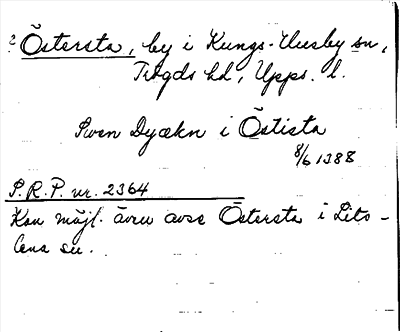 ? Östersta, by i Kungs-Husby sn,
Trögds hd, Upps. l.
Sven Dyækn i Östista
8/6 1388
S.R.P. nr. 2364
Kan möjl. även avse Östersta i Lits-
lena sn.